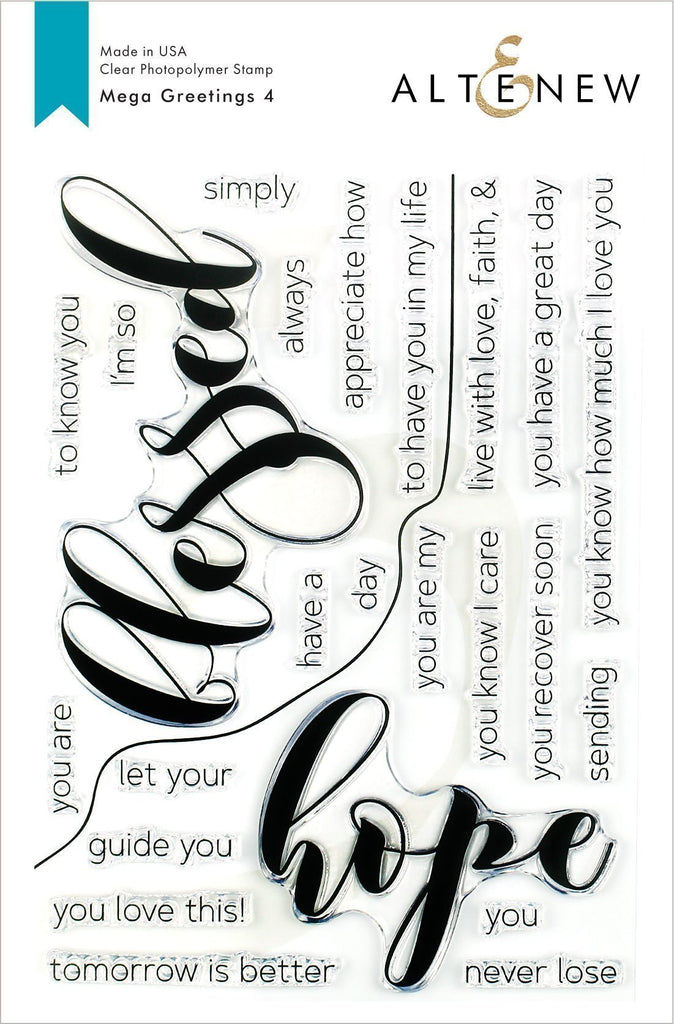 Made in USA
Clear Photopolymer Stamp
Mega Greetings 4
ALTENEW
simply
blessed
to know you
I'm so
always
appreciate how
to have you in my life
live with love, faith, &
you have a great day
you know how much I love you
have a
day
you are my
you know I care
you recover soon
sending
you are
let your
hope
guide you
you love this!
you
tomorrow is better
never lose